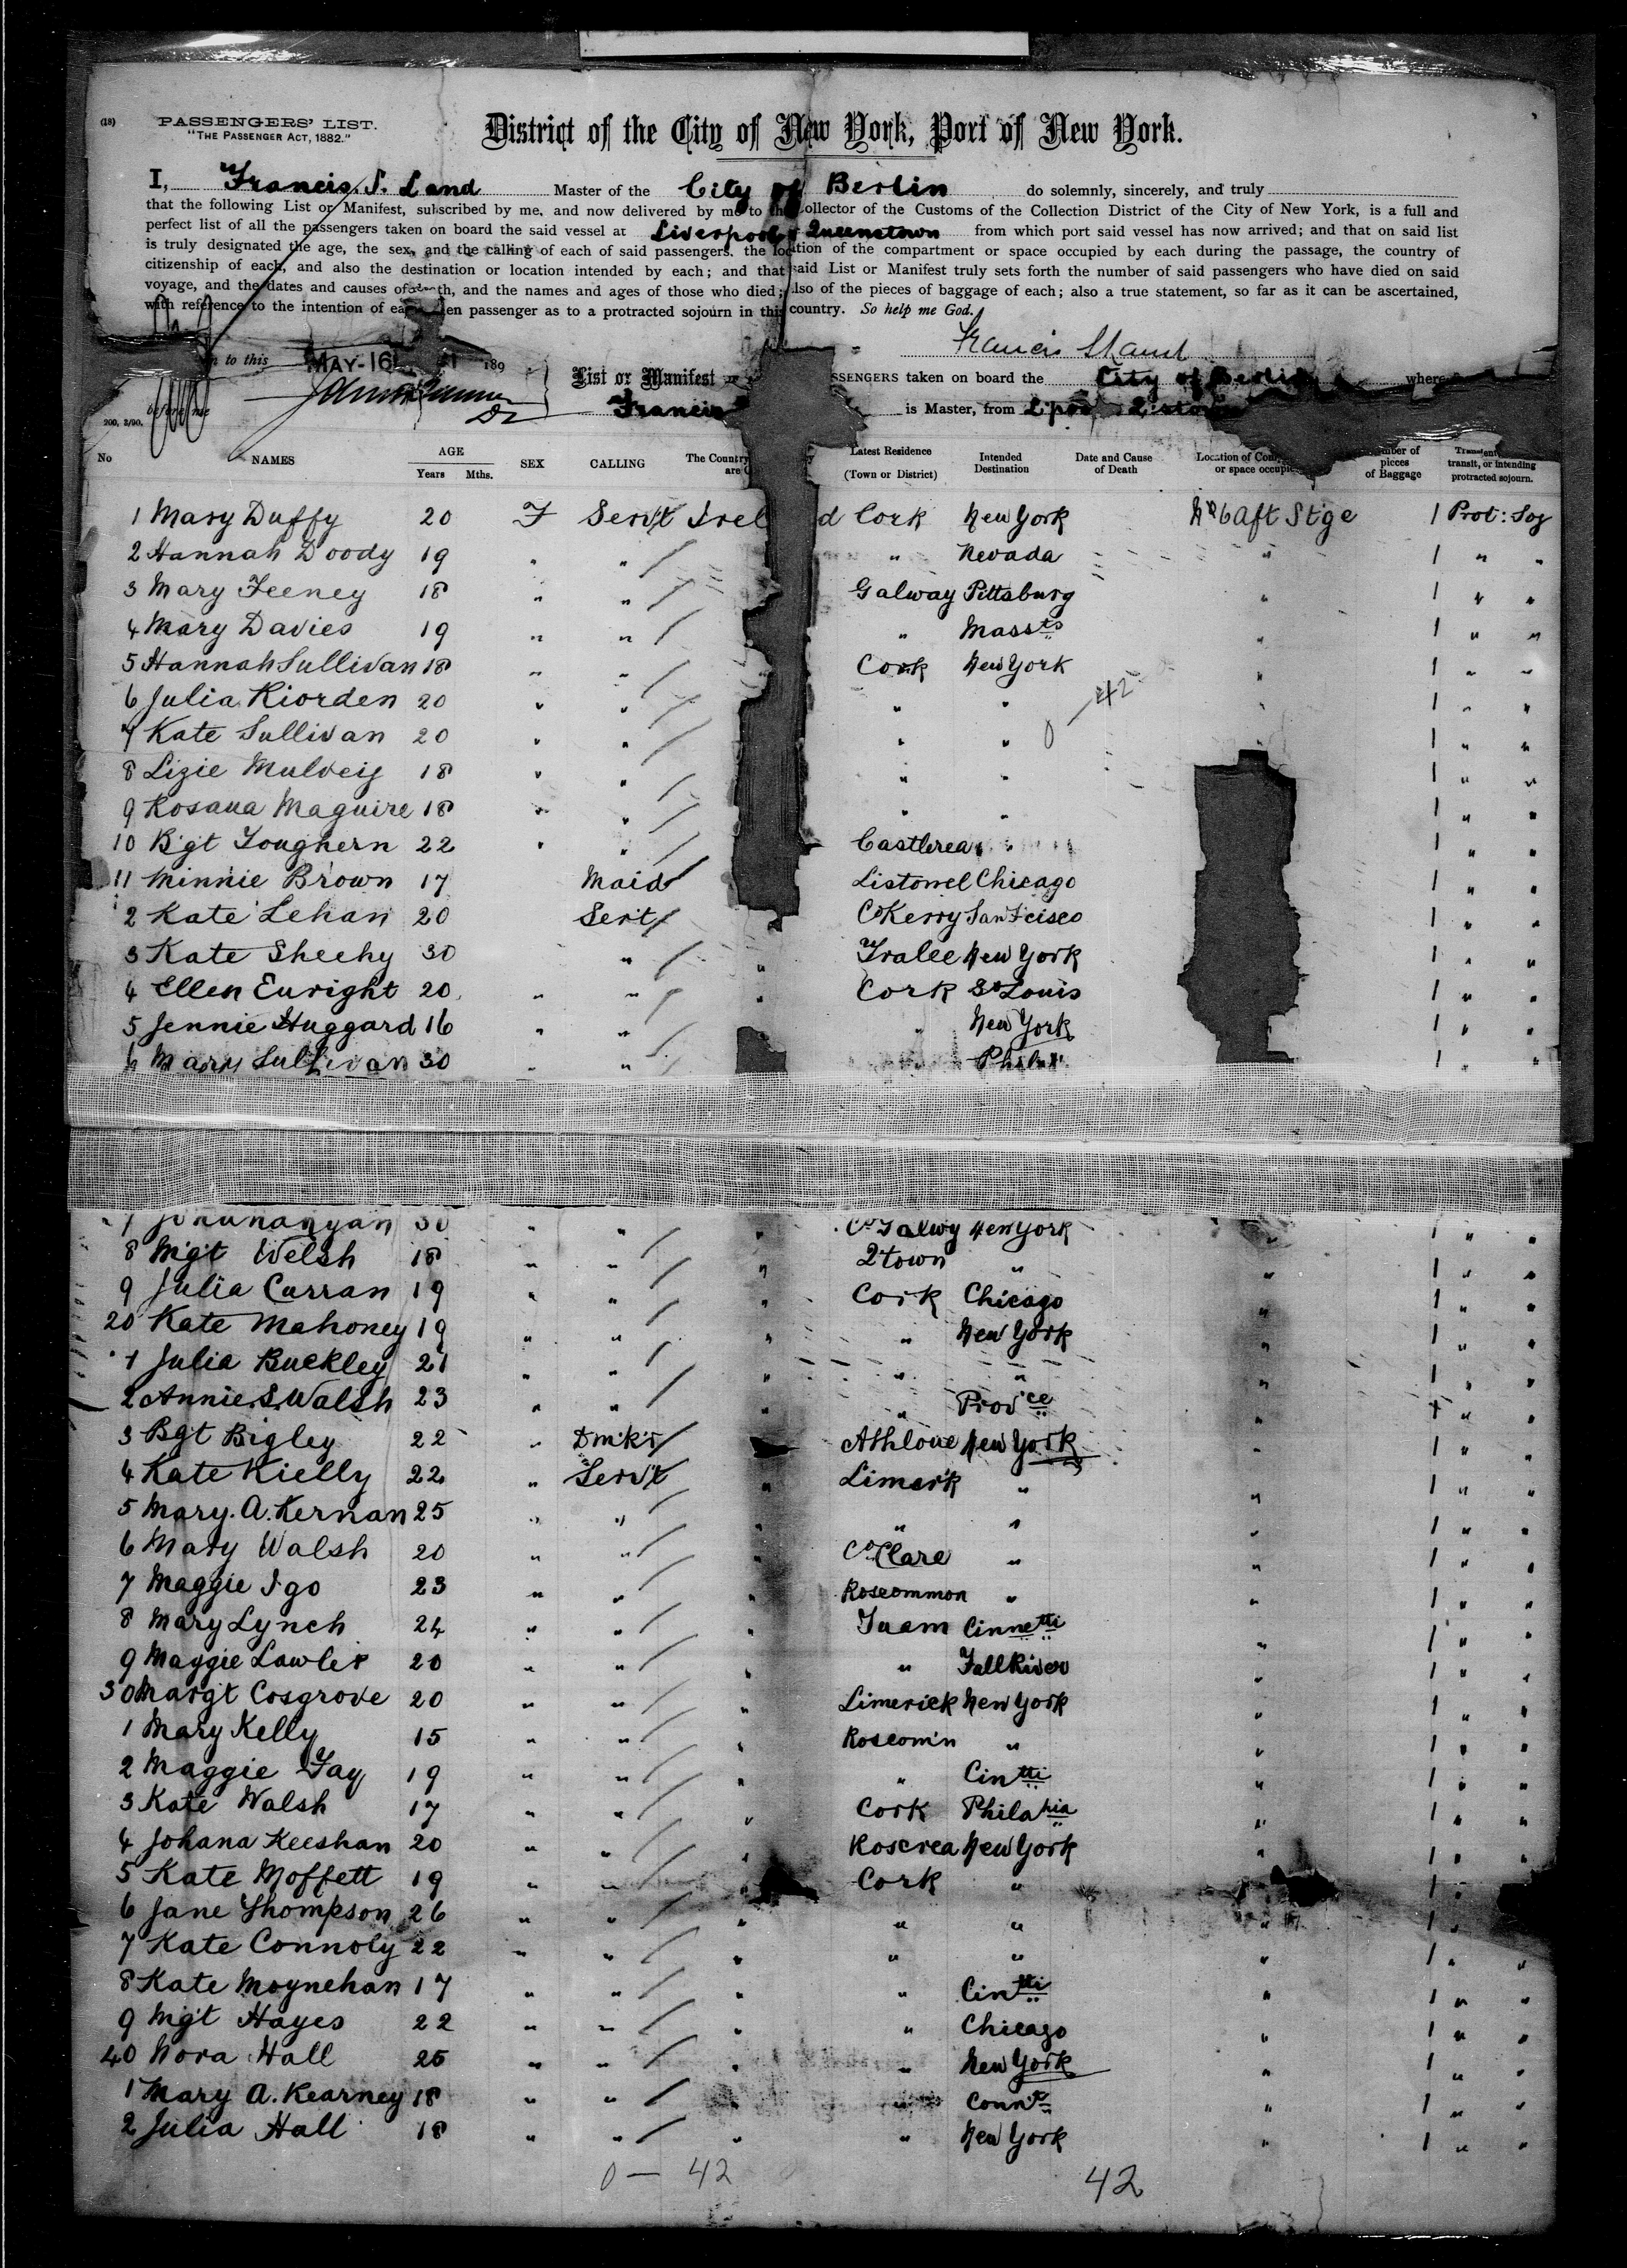 (18)
PASSENGERS' LIST.
"THE PASSENGER ACT, 1882."
District of the City of New York, Port of New York.
I, Francis S. Land Master of the City of Berlin do solemnly, sincerely, and truly
that the following List or Manifest, subscribed by me, and now delivered by me to the Collector of the Customs of the Collection District of the City of New York, is a full and
perfect list of all the passengers taken on board the said vessel at Liverpool & Queenstown from which port said vessel has now arrived; and that on said list
is truly designated the age, the sex, and the calling of each of said passengers. the location of the compartment or space occupied by each during the passage, the country of
citizenship of each, and also the destination or location intended by each; and that said List or Manifest truly sets forth the number of said passengers who have died on said
voyage, and the dates and causes of death, and the names and ages of those who died; also of the pieces of baggage of each; also a true statement, so far as it can be ascertained,
with reference to the intention of each alien passenger as to a protracted sojourn in this country. So help me God.
Francis S Land
to this MAY-16 189
before me
List or Manifest PASSENGERS taken on board the City of Berlin where
Francis is Master, from L'pool Q'stown
200, 3/90.
No NAMES AGE Years Mths. SEX CALLING The Country are Latest Residence (Town or District) Intended Destination Date and Cause of Death Location of or space pieces of Baggage transit, or intending protracted sojourn.
1 Mary Duffy 20 F Serv't Irel d Cork New York No 6 Aft Stge 1 Prot: Soj
2 Hannah Doody 19 " " " Nevada " 1 " "
3 Mary Feeney 18 " " Galway Pittsburg " 1 " "
4 Mary Davies 19 " " " Massts " 1 " "
5 Hannah Sullivan 18 " " Cork New York " 1 " "
6 Julia Riorden 20 " " " " " 1 " "
0 — 42
7 Kate Sullivan 20 " " " " " 1 " "
8 Lizie Mulveig 18 " " " " 1 " "
9 Rosana Maguire 18 " " " " 1 " "
10 Bgt Loughern 22 " " Castlerea " 1 " "
11 Minnie Brown 17 Maid Listowel Chicago 1 " "
2 Kate Lehan 20 Serv't Co Kerry San Fcisco 1 " "
3 Kate Sheehy 30 " " Tralee New York 1 " "
4 Ellen Enright 20 " " " Cork St Louis 1 " "
5 Jennie Huggard 16 " " " New York 1 " "
6 Mary Sullivan 30 " " Phila 1 " "
7 30 " " " Co Galwy New York 1 " "
8 Mgt Welsh 18 " " " Q'town " " 1 " "
9 Julia Curran 19 " " " Cork Chicago " 1 " "
20 Kate Mahoney 19 " " " " New York " 1 " "
1 Julia Buckley 21 " " " " " " 1 " "
2 Annie S. Walsh 23 " " " " Provce " 1 " "
3 Bgt Bigley 22 " Dm'k'r Athlone New York " 1 " "
4 Kate Kielly 22 " Serv't " Limerk " " 1 " "
5 Mary. A. Kernan 25 " " " " " " 1 " "
6 Mary Walsh 20 " " " Co Clare " " 1 " "
7 Maggie Igo 23 " " " Roscommon " " 1 " "
8 Mary Lynch 24 " " " Tuam Cinnetti " 1 " "
9 Maggie Lawler 20 " " " " Fall River " 1 " "
30 Margt Cosgrove 20 " " " Limerick New York " 1 " "
1 Mary Kelly 15 " " " Roscom'n " " 1 " "
2 Maggie Fay 19 " " " " Cintti " 1 " "
3 Kate Walsh 17 " " " Cork Philaphia " 1 " "
4 Johana Keeshan 20 " " " Roscrea New York " 1 " "
5 Kate Moffett 19 " " " Cork " 1 "
6 Jane Thompson 26 " " " " " " 1 "
7 Kate Connoly 22 " " " " " " 1 " "
8 Kate Moynehan 17 " " " " Cintti " 1 " "
9 Mgt Hayes 22 " " " " Chicago " 1 " "
40 Nora Hall 25 " " " " New York " 1 " "
1 Mary A. Kearney 18 " " " " Connt " 1 " "
2 Julia Hall 18 " " " " New York " 1 " "
0 — 42 42